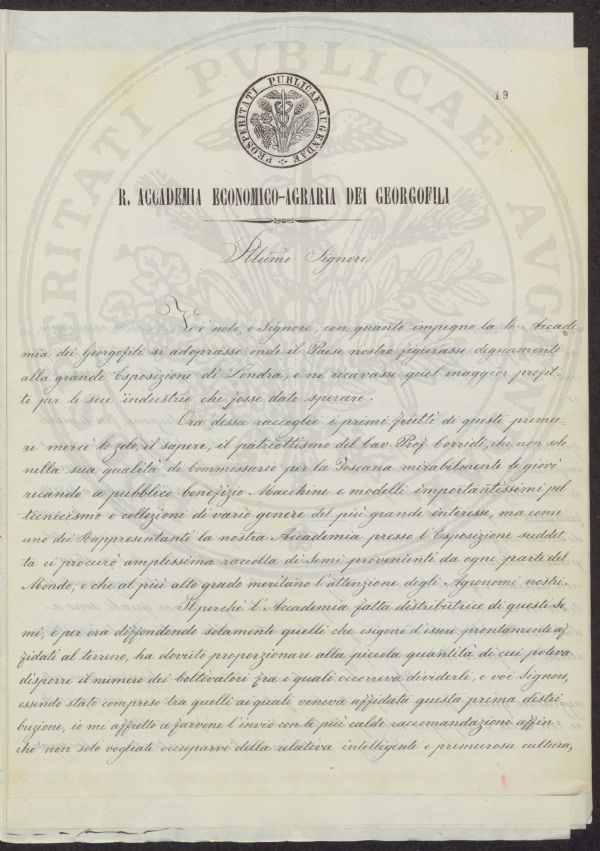 19
PROSPERITATI PUBLICAE AUGENDAE
R. ACCADEMIA ECONOMICO-AGRARIA DEI GEORGOFILI
Illumo. Signore
Vi è noto, o Signore, con quanto impegno la R. Accade-
mia dei Georgofili si adoprasse onde il Paese nostro figurasse degnamente
alla grande Esposizione di Londra, e ne ricavasse quel maggior profit-
to per le sue industrie che fosse dato sperare.
Ora dessa raccoglie i primi frutti di queste premu-
re mercè lo zelo, il sapere, il patriottismo del Cav. Prof. Corridi, che non solo
nella sua qualità di Commissario per la Toscana mirabilmente le giovò
recando a pubblico benefizio Macchine e modelli importantissimi pel
tecnicismo e collezioni di vario genere del più grande interesse, ma come
uno dei Rappresentanti la nostra Accademia presso l'Esposizione suddet-
ta ci procurò amplissima raccolta di Semi provenienti da ogni parte del
Mondo, e che al più alto grado meritano l'attenzione degli Agronomi nostri.
Il perchè l'Accademia fatta distributrice di questi Se-
mi, e per ora diffondendo solamente quelli che esigono d'essere prontamente af-
fidati al terreno, ha dovuto proporzionare alla piccola quantità di cui poteva
disporre il numero dei Coltivatori fra i quali occorreva dividerli, e voi Signore,
essendo stato compreso tra quelli ai quali veniva affidata questa prima distri-
buzione, io mi affretto a farvene l'invio con le più calde raccomandazioni affin-
chè non solo vogliate occuparvi della relativa intelligente e premurosa cultura,